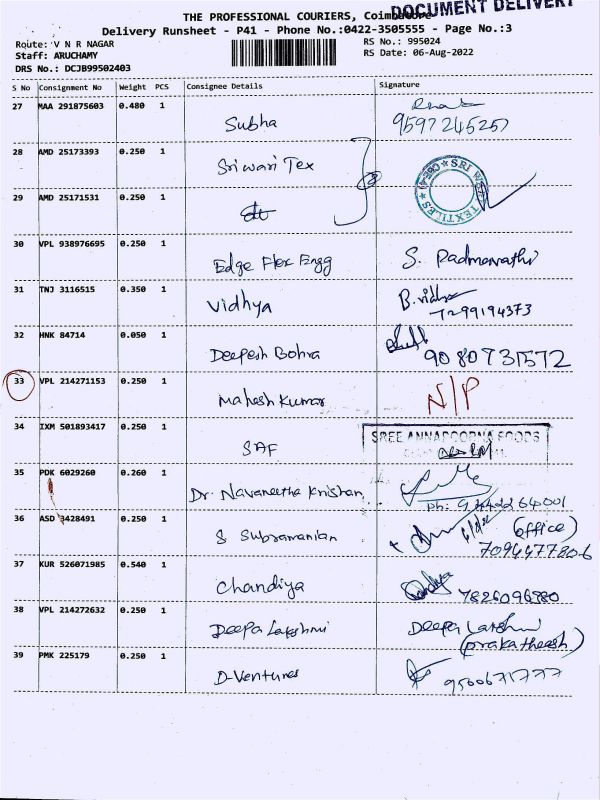 DOCUMENT DELIVERY
THE PROFESSIONAL COURIERS, Coimbatore
Delivery Runsheet - P41 - Phone No.:0422-3505555 - Page No.:3
Route: V N R NAGAR
RS No.: 995024
Staff: ARUCHAMY
RS Date: 06-Aug-2022
DRS No.: DCJB99502403
S No Consignment No Weight PCS Consignee Details Signature
27 MAA 291875603 0.480 1 Subha
9597245257
28 AMD 25173393 0.250 1 Sriwari Tex
29 AMD 25171531 0.250 1 dt
TEXTILES ★ (CBE-4) ★ SRI
30 VPL 938976695 0.250 1 Edge Flex Engg S. Padmavathi
31 TNJ 3116515 0.350 1 Vidhya B. vidhya
7299194373
32 HNK 84714 0.050 1 Deepesh Bohra
9080731572
33 VPL 214271153 0.250 1 Mahesh Kumar N/P
34 IXM 501893417 0.250 1 SAF SREE ANNAPOORNA FOODS
35 PDK 6029260 0.260 1 Dr. Navaneetha Krishan
36 ASD 3428491 0.250 1 S Subramanian (office)
7094477806
37 KUR 526071985 0.540 1 Chandiya
7826096980
38 VPL 214272632 0.250 1 Deepa Lakshmi Deepa Lakshmi
(prakatheesh)
39 PMK 225179 0.250 1 D-Ventures
9500671777